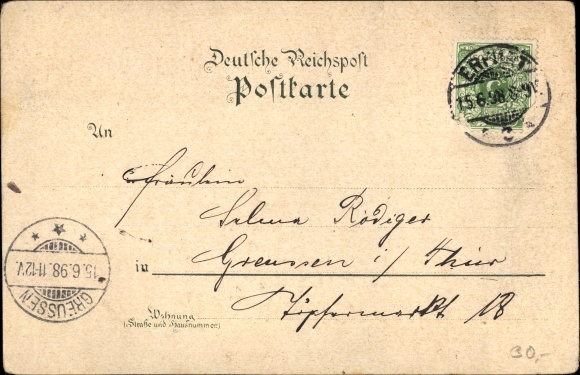 Deutsche Reichspost
Postkarte
ERFURT
15.6.98.
An
Fräulein
Selma Rödiger
in Greussen i/Thür
Wohnung
(Straße und Hausnummer)
Töpfermarkt 18
GREUSSEN
15.6.98.11-12V.
30,-